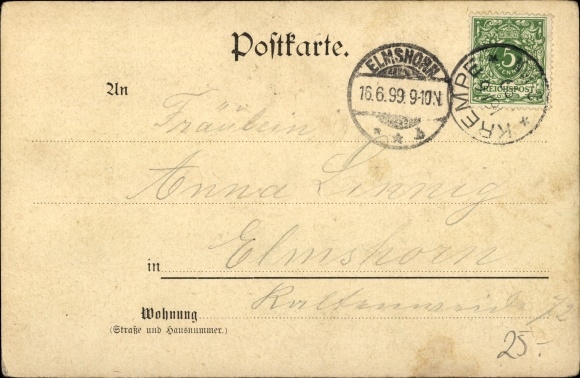 Postkarte.
ELMSHORN
16.6.99. 9-10N.
KREMPE
5
REICHSPOST
An
Fräulein
Anna
Elmshorn
in
Wohnung
(Straße und Hausnummer.)
25.-